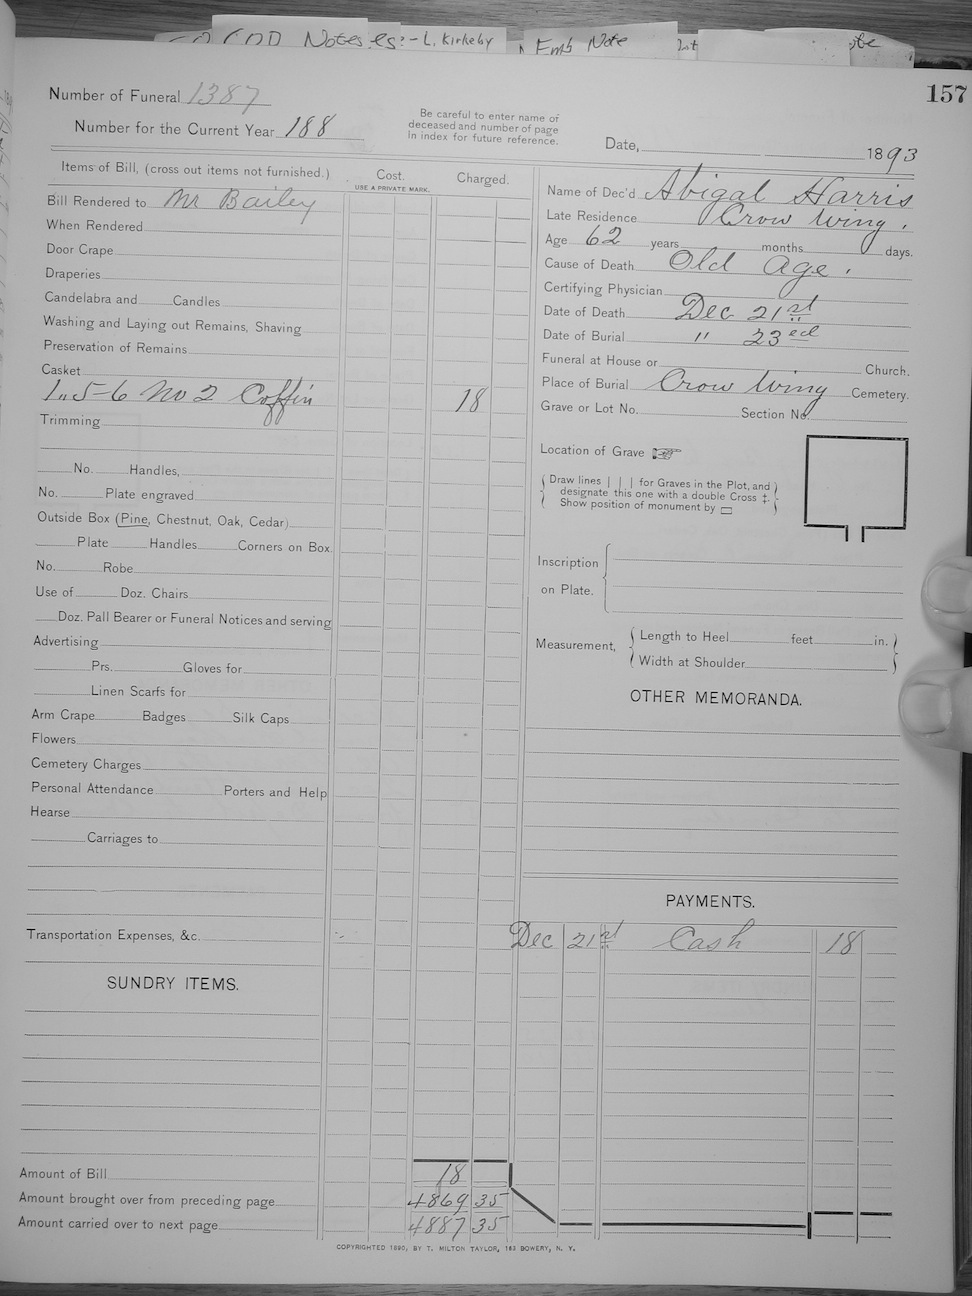 COD Notes es:- L. Kirkeby
Emb Note
157
Number of Funeral 1387
Number for the Current Year 188
Be careful to enter name of
deceased and number of page
in index for future reference.
Date, 1893
Items of Bill, (cross out items not furnished.)
Cost.
USE A PRIVATE MARK.
Charged.
Bill Rendered to Mr Bailey
When Rendered
Door Crape
Draperies
Candelabra and Candles
Washing and Laying out Remains, Shaving
Preservation of Remains
Casket
1,, 5-6 No 2 Coffin 18
Trimming
No. Handles,
No. Plate engraved
Outside Box (Pine, Chestnut, Oak, Cedar)
Plate Handles Corners on Box
No. Robe
Use of Doz. Chairs
Doz. Pall Bearer or Funeral Notices and serving
Advertising
Prs. Gloves for
Linen Scarfs for
Arm Crape Badges Silk Caps
Flowers
Cemetery Charges
Personal Attendance Porters and Help
Hearse
Carriages to
Transportation Expenses, &c.
SUNDRY ITEMS.
Amount of Bill 18
Amount brought over from preceding page 4869 35
Amount carried over to next page 4887 35
Name of Dec'd Abigal Harris
Late Residence Crow Wing.
Age 62 years months days.
Cause of Death Old Age.
Certifying Physician
Date of Death Dec 21st
Date of Burial " 23ed
Funeral at House or Church.
Place of Burial Crow Wing Cemetery.
Grave or Lot No. Section No.
Location of Grave
Draw lines | | | for Graves in the Plot, and
designate this one with a double Cross ‡.
Show position of monument by ▭
Inscription
on Plate.
Measurement,
Length to Heel feet in.
Width at Shoulder
OTHER MEMORANDA.
PAYMENTS.
Dec 21st Cash 18
COPYRIGHTED 1890, BY T. MILTON TAYLOR, 163 BOWERY, N. Y.